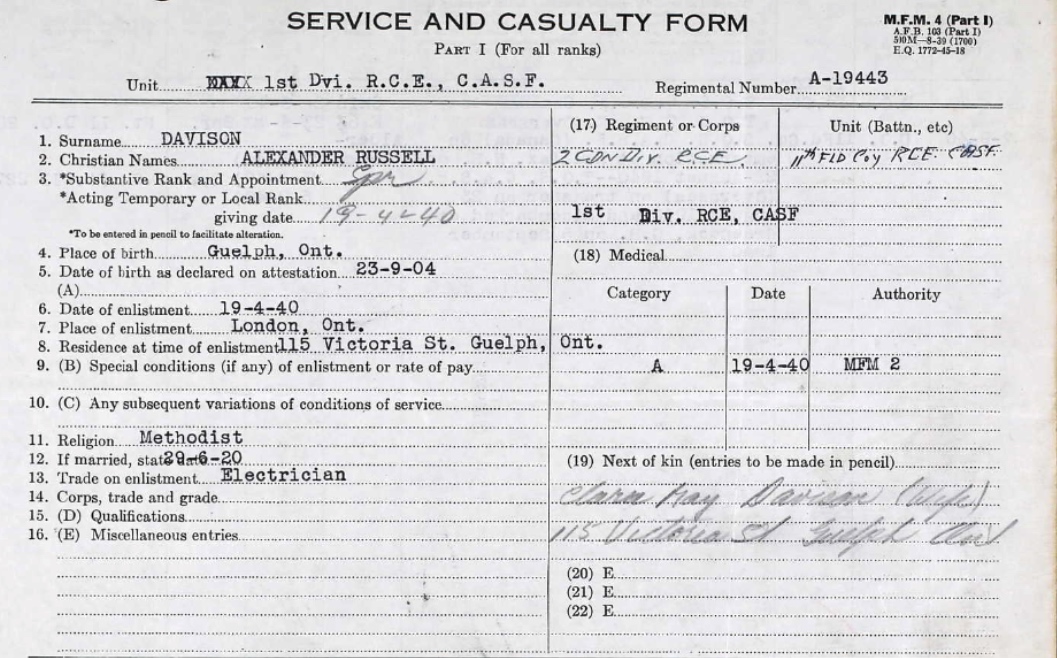 SERVICE AND CASUALTY FORM
M.F.M. 4 (Part I)
A.F.B. 103 (Part I)
510M—8-39 (1700)
E.Q. 1772-45-18
PART I (For all ranks)
Unit 1st Dvi. R.C.E., C.A.S.F.
Regimental Number A-19443
1. Surname DAVISON
2. Christian Names ALEXANDER RUSSELL
3. *Substantive Rank and Appointment Spr
*Acting Temporary or Local Rank
giving date 19-4-40
*To be entered in pencil to facilitate alteration.
4. Place of birth Guelph, Ont.
5. Date of birth as declared on attestation 23-9-04
(A)
6. Date of enlistment 19-4-40
7. Place of enlistment London, Ont.
8. Residence at time of enlistment 115 Victoria St. Guelph, Ont.
9. (B) Special conditions (if any) of enlistment or rate of pay
10. (C) Any subsequent variations of conditions of service
11. Religion Methodist
12. If married, state date 29-6-20
13. Trade on enlistment Electrician
14. Corps, trade and grade
15. (D) Qualifications
16. (E) Miscellaneous entries
(17) Regiment or Corps
Unit (Battn., etc)
2 CDN DIV. RCE
11th FLD Coy RCE. CASF.
1st Div. RCE, CASF
(18) Medical
Category Date Authority
A 19-4-40 MFM 2
(19) Next of kin (entries to be made in pencil)
Clara May Davison (Wife)
115 Victoria St Guelph Ont
(20) E
(21) E
(22) E